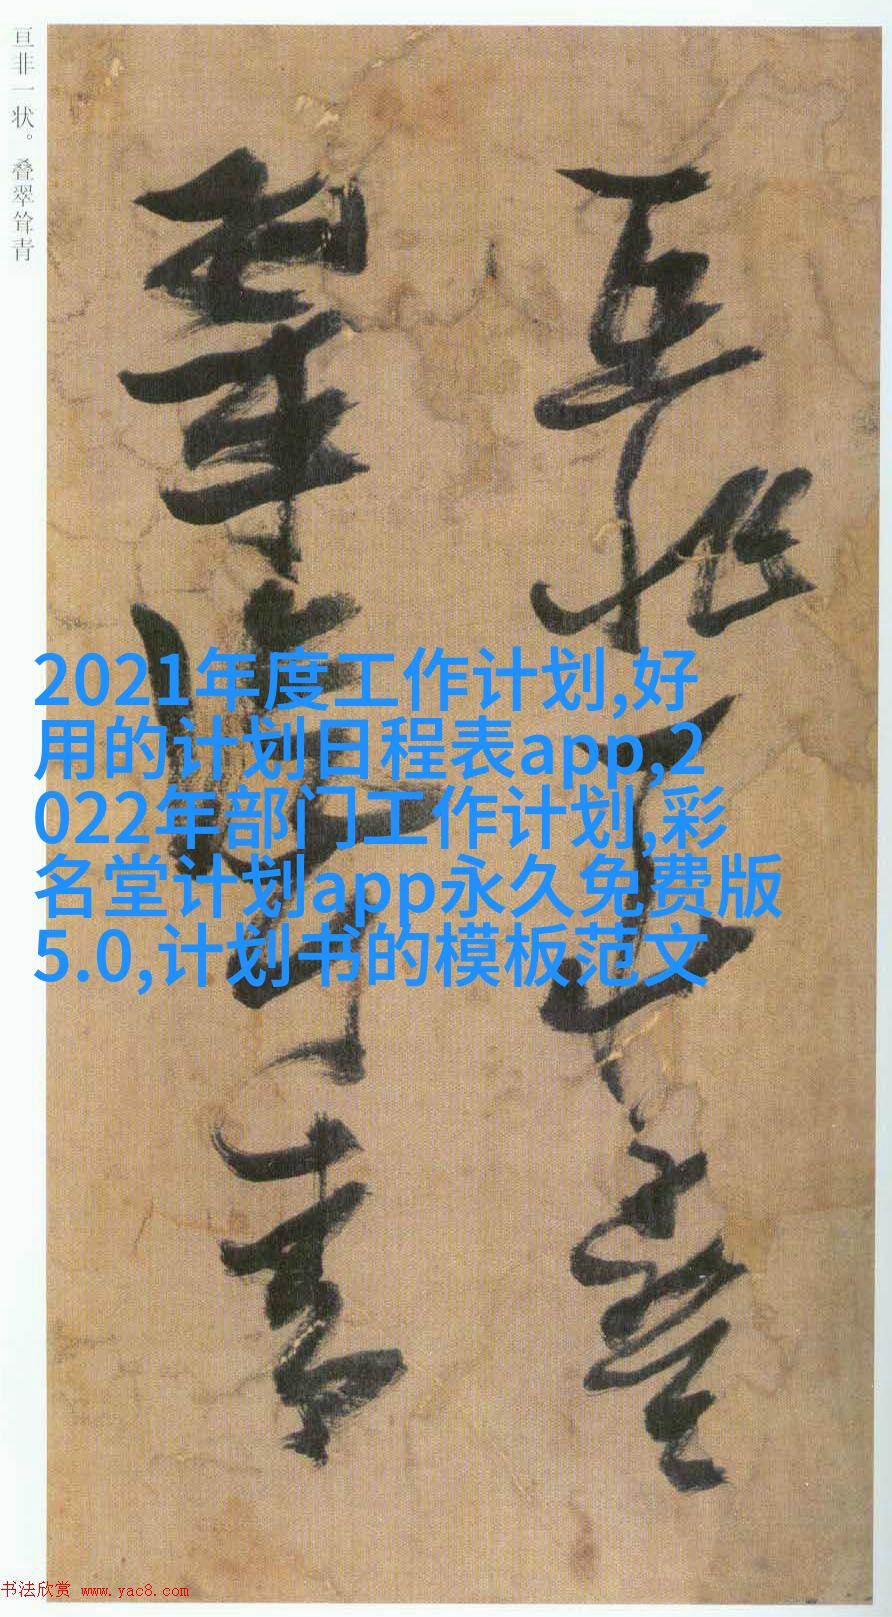 亘非一状。叠翠耸青
2021年度工作计划,好
用的计划日程表app,2
022年部门工作计划,彩
名堂计划app永久免费版
5.0,计划书的模板范文
亘非一状叠
翠耸青
书法欣赏 www.yac8.com